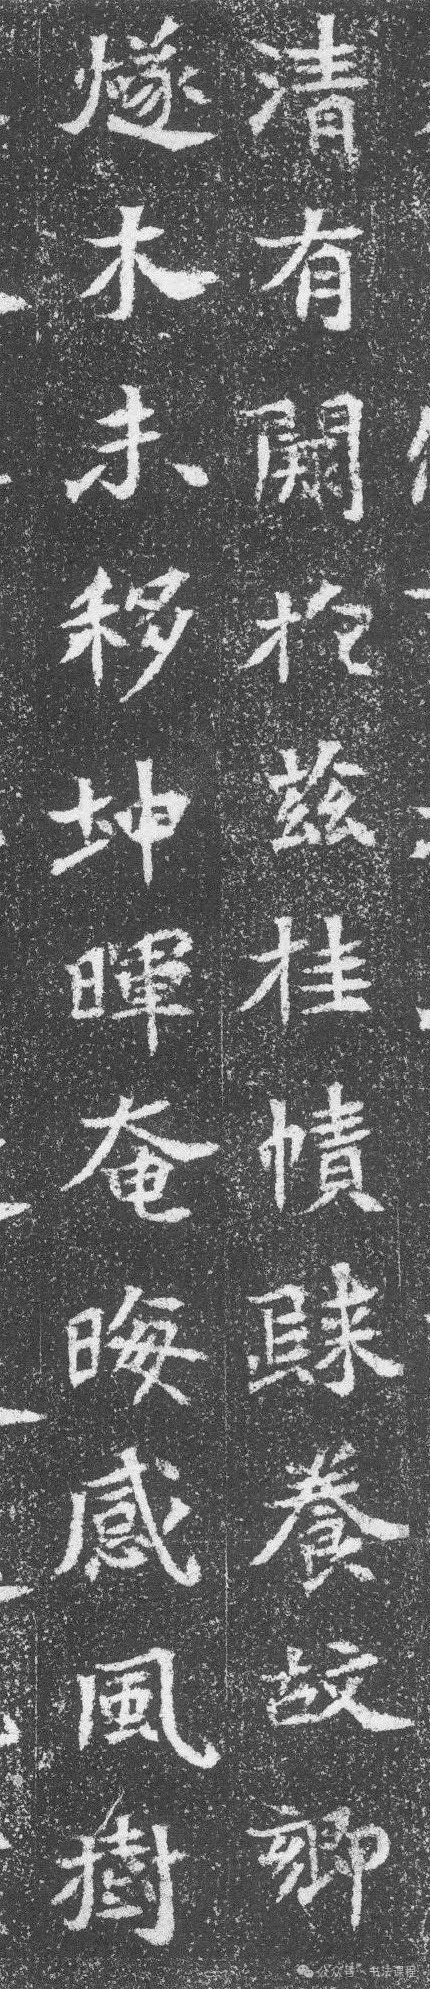 清有闕扵兹桂幘養故卿
燧木未移坤暉奄晦感風樹
公众号·书法课程